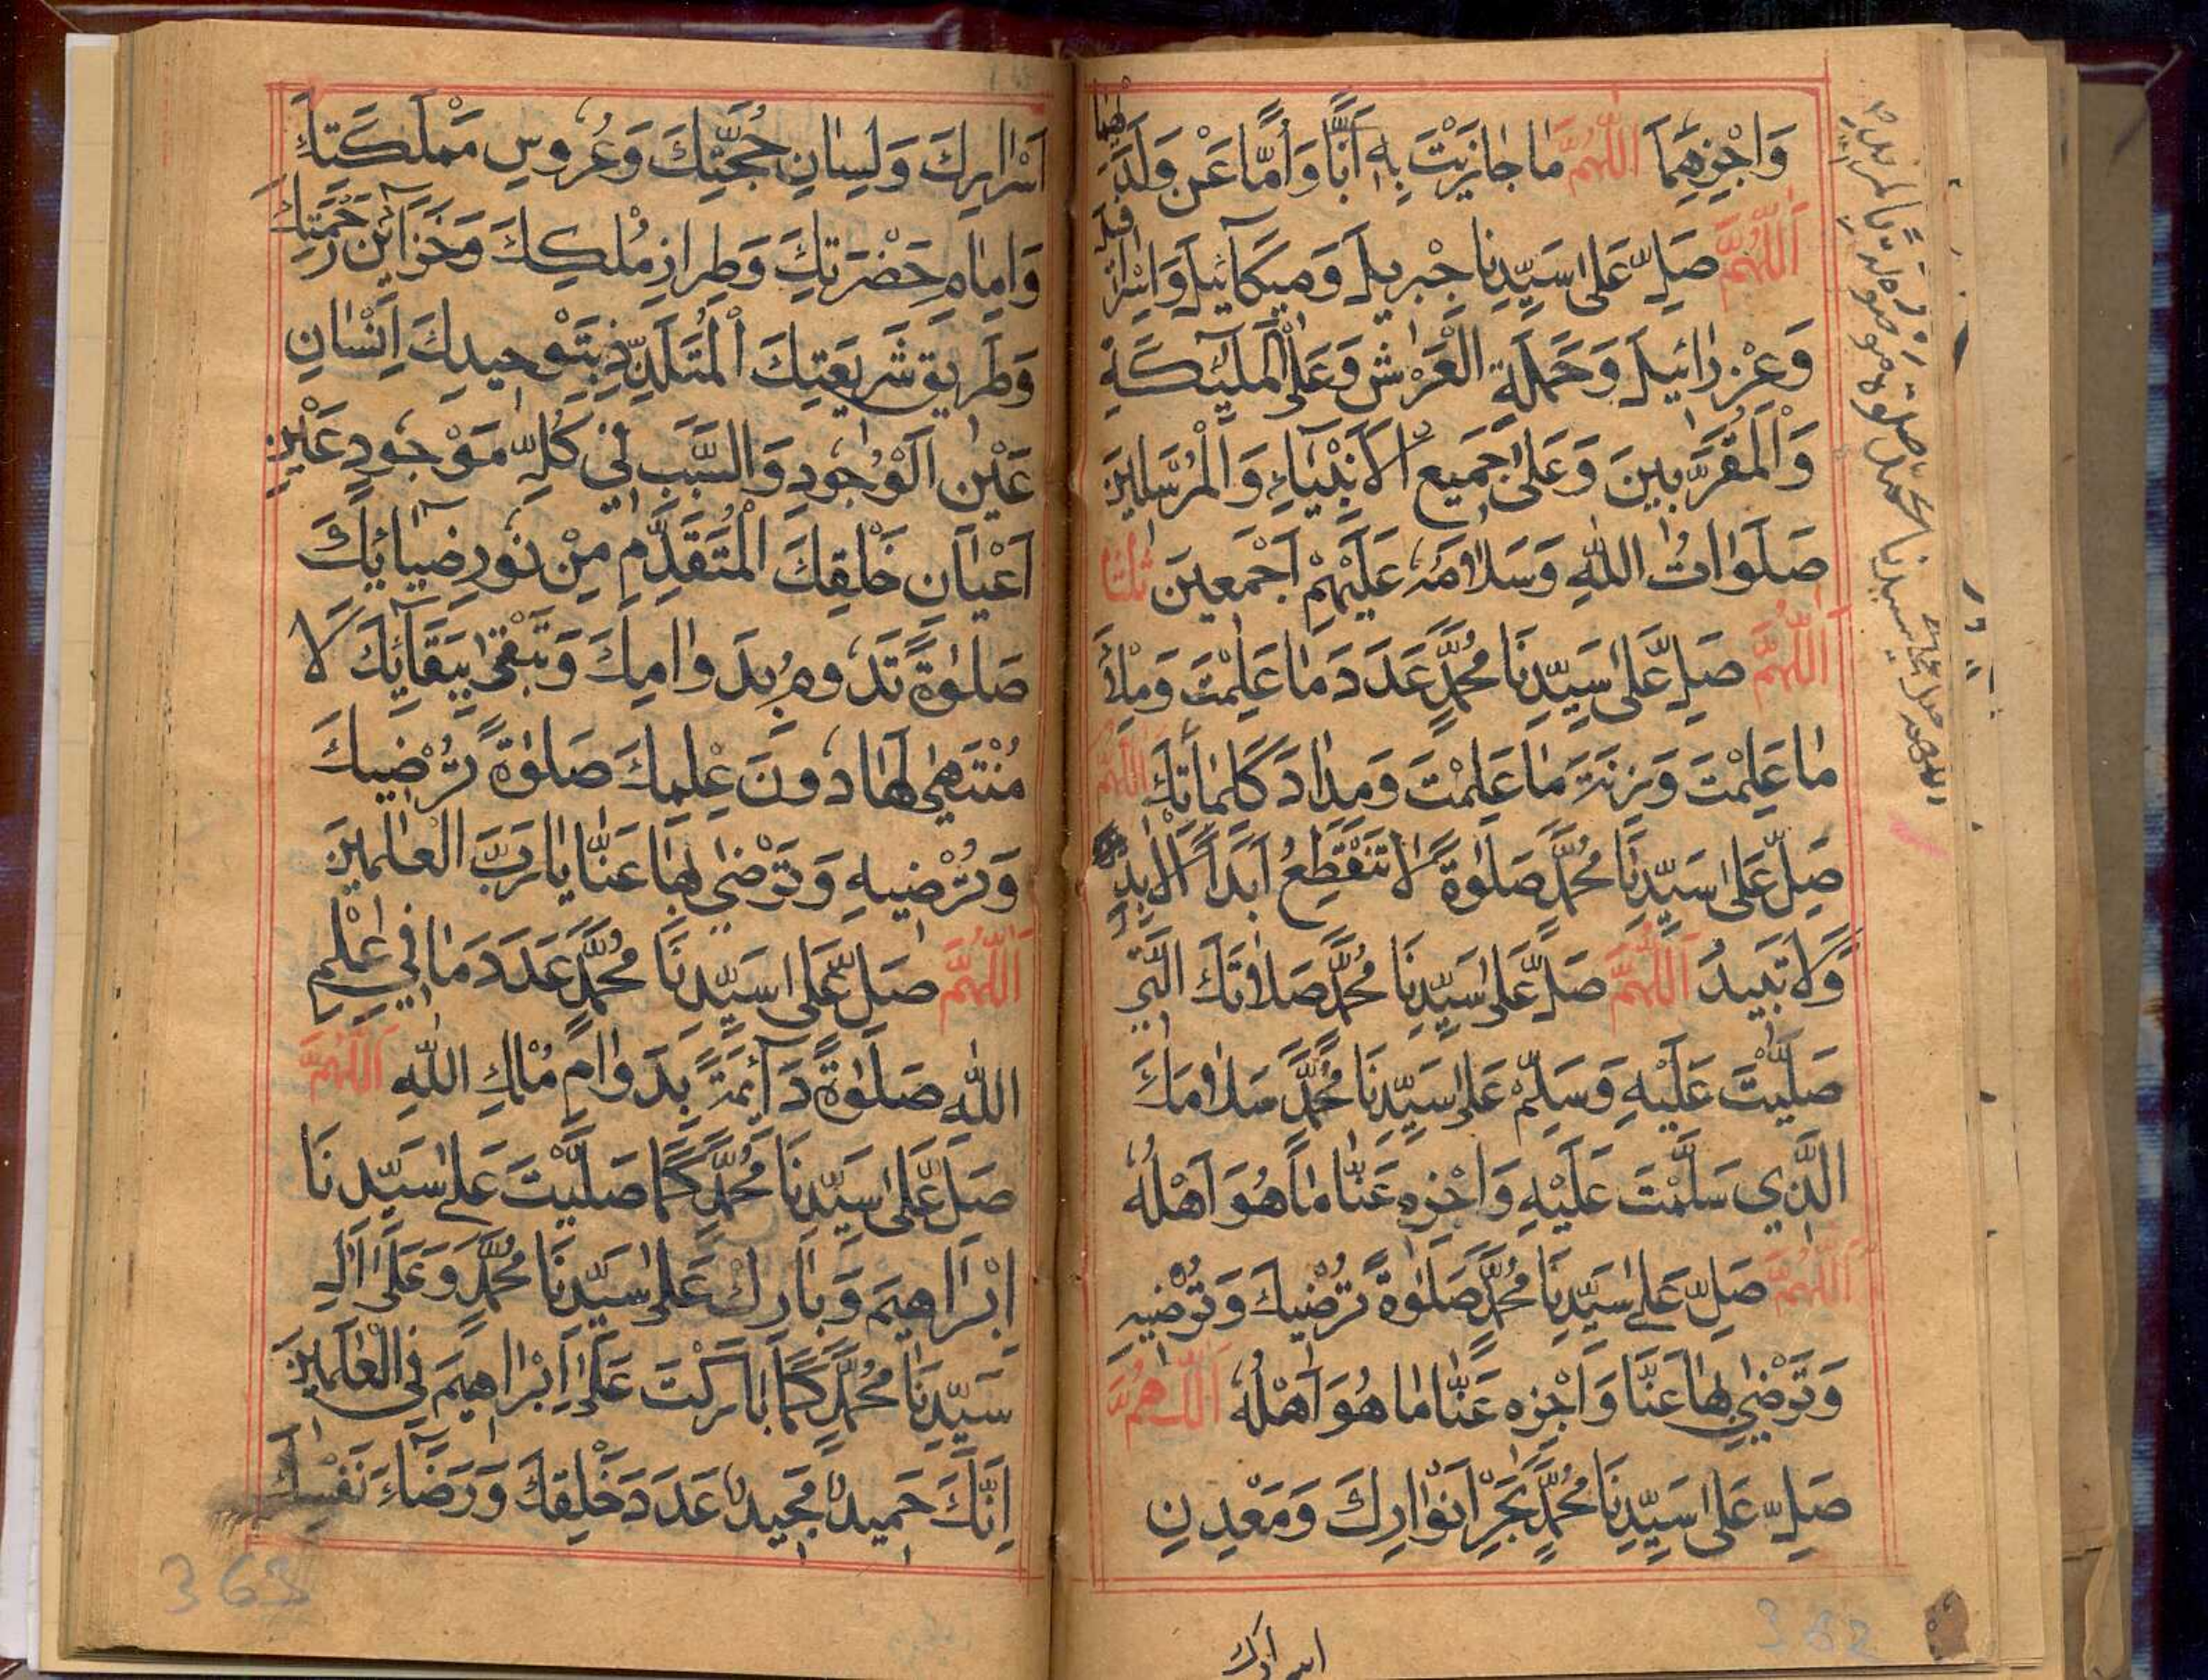 وَاجْزِهِمَا اَللّٰهُمَّ مَا جَازَيْتَ بِهِ اَبًّا وَاُمًّا عَنْ وَلَدَيْهِمَا
اَللّٰهُمَّ صَلِّ عَلٰى سَيِّدِنَا جِبْرِيلَ وَمِيكَائِيلَ وَاِسْرَافِيلَ
وَعِزْرَائِيلَ وَحَمَلَةِ الْعَرْشِ وَعَلَى الْمَلٰئِكَةِ
وَالْمُقَرَّبِينَ وَعَلٰى جَمِيعِ الْاَنْبِيَاءِ وَالْمُرْسَلِينَ
صَلَوَاتُ اللّٰهِ وَسَلَامُهُ عَلَيْهِمْ اَجْمَعِينَ ثَلٰثًا
اَللّٰهُمَّ صَلِّ عَلٰى سَيِّدِنَا مُحَمَّدٍ عَدَدَ مَا عَلِمْتَ وَمِلْأَ
مَا عَلِمْتَ وَزِنَةَ مَا عَلِمْتَ وَمِدَادَ كَلِمَاتِكَ اَللّٰهُمَّ
صَلِّ عَلٰى سَيِّدِنَا مُحَمَّدٍ صَلٰوةً لَا تَنْقَطِعُ اَبَدًا الْاَبَدِ
وَلَا تَبِيدُ اَللّٰهُمَّ صَلِّ عَلٰى سَيِّدِنَا مُحَمَّدٍ صَلَاتَكَ الَّتِي
صَلَّيْتَ عَلَيْهِ وَسَلِّمْ عَلٰى سَيِّدِنَا مُحَمَّدٍ سَلَامَكَ
الَّذِي سَلَّمْتَ عَلَيْهِ وَاجْزِهِ عَنَّا مَا هُوَ اَهْلُهُ
اَللّٰهُمَّ صَلِّ عَلٰى سَيِّدِنَا مُحَمَّدٍ صَلٰوةً تُرْضِيكَ وَتُرْضِيهِ
وَتَرْضٰى بِهَا عَنَّا وَاجْزِهِ عَنَّا مَا هُوَ اَهْلُهُ اَللّٰهُمَّ
صَلِّ عَلٰى سَيِّدِنَا مُحَمَّدٍ بَحْرِ اَنْوَارِكَ وَمَعْدِنِ
اسرارك
362
اَسْرَارِكَ وَلِسَانِ حُجَّتِكَ وَعُرُوسِ مَمْلَكَتِكَ
وَاِمَامِ حَضْرَتِكَ وَطِرَازِ مُلْكِكَ وَخَزَائِنِ رَحْمَتِكَ
وَطَرِيقِ شَرِيعَتِكَ الْمُتَلَذِّذِ بِتَوْحِيدِكَ اِنْسَانِ
عَيْنِ الْوُجُودِ وَالسَّبَبِ فِي كُلِّ مَوْجُودٍ عَيْنِ
اَعْيَانِ خَلْقِكَ الْمُتَقَدِّمِ مِنْ نُورِ ضِيَائِكَ
صَلٰوةً تَدُومُ بِدَوَامِكَ وَتَبْقٰى بِبَقَائِكَ لَا
مُنْتَهٰى لَهَا دُونَ عِلْمِكَ صَلٰوةً تُرْضِيكَ
وَتُرْضِيهِ وَتَرْضٰى بِهَا عَنَّا يَا رَبَّ الْعَالَمِينَ
اَللّٰهُمَّ صَلِّ عَلٰى سَيِّدِنَا مُحَمَّدٍ عَدَدَ مَا فِي عِلْمِ
اللّٰهِ صَلٰوةً دَائِمَةً بِدَوَامِ مُلْكِ اللّٰهِ اَللّٰهُمَّ
صَلِّ عَلٰى سَيِّدِنَا مُحَمَّدٍ كَمَا صَلَّيْتَ عَلٰى سَيِّدِنَا
اِبْرَاهِيمَ وَبَارِكْ عَلٰى سَيِّدِنَا مُحَمَّدٍ وَعَلٰى اٰلِ
سَيِّدِنَا مُحَمَّدٍ كَمَا بَارَكْتَ عَلٰى اِبْرَاهِيمَ فِي الْعَالَمِينَ
اِنَّكَ حَمِيدٌ مَجِيدٌ عَدَدَ خَلْقِكَ وَرِضَاءَ نَفْسِكَ
363